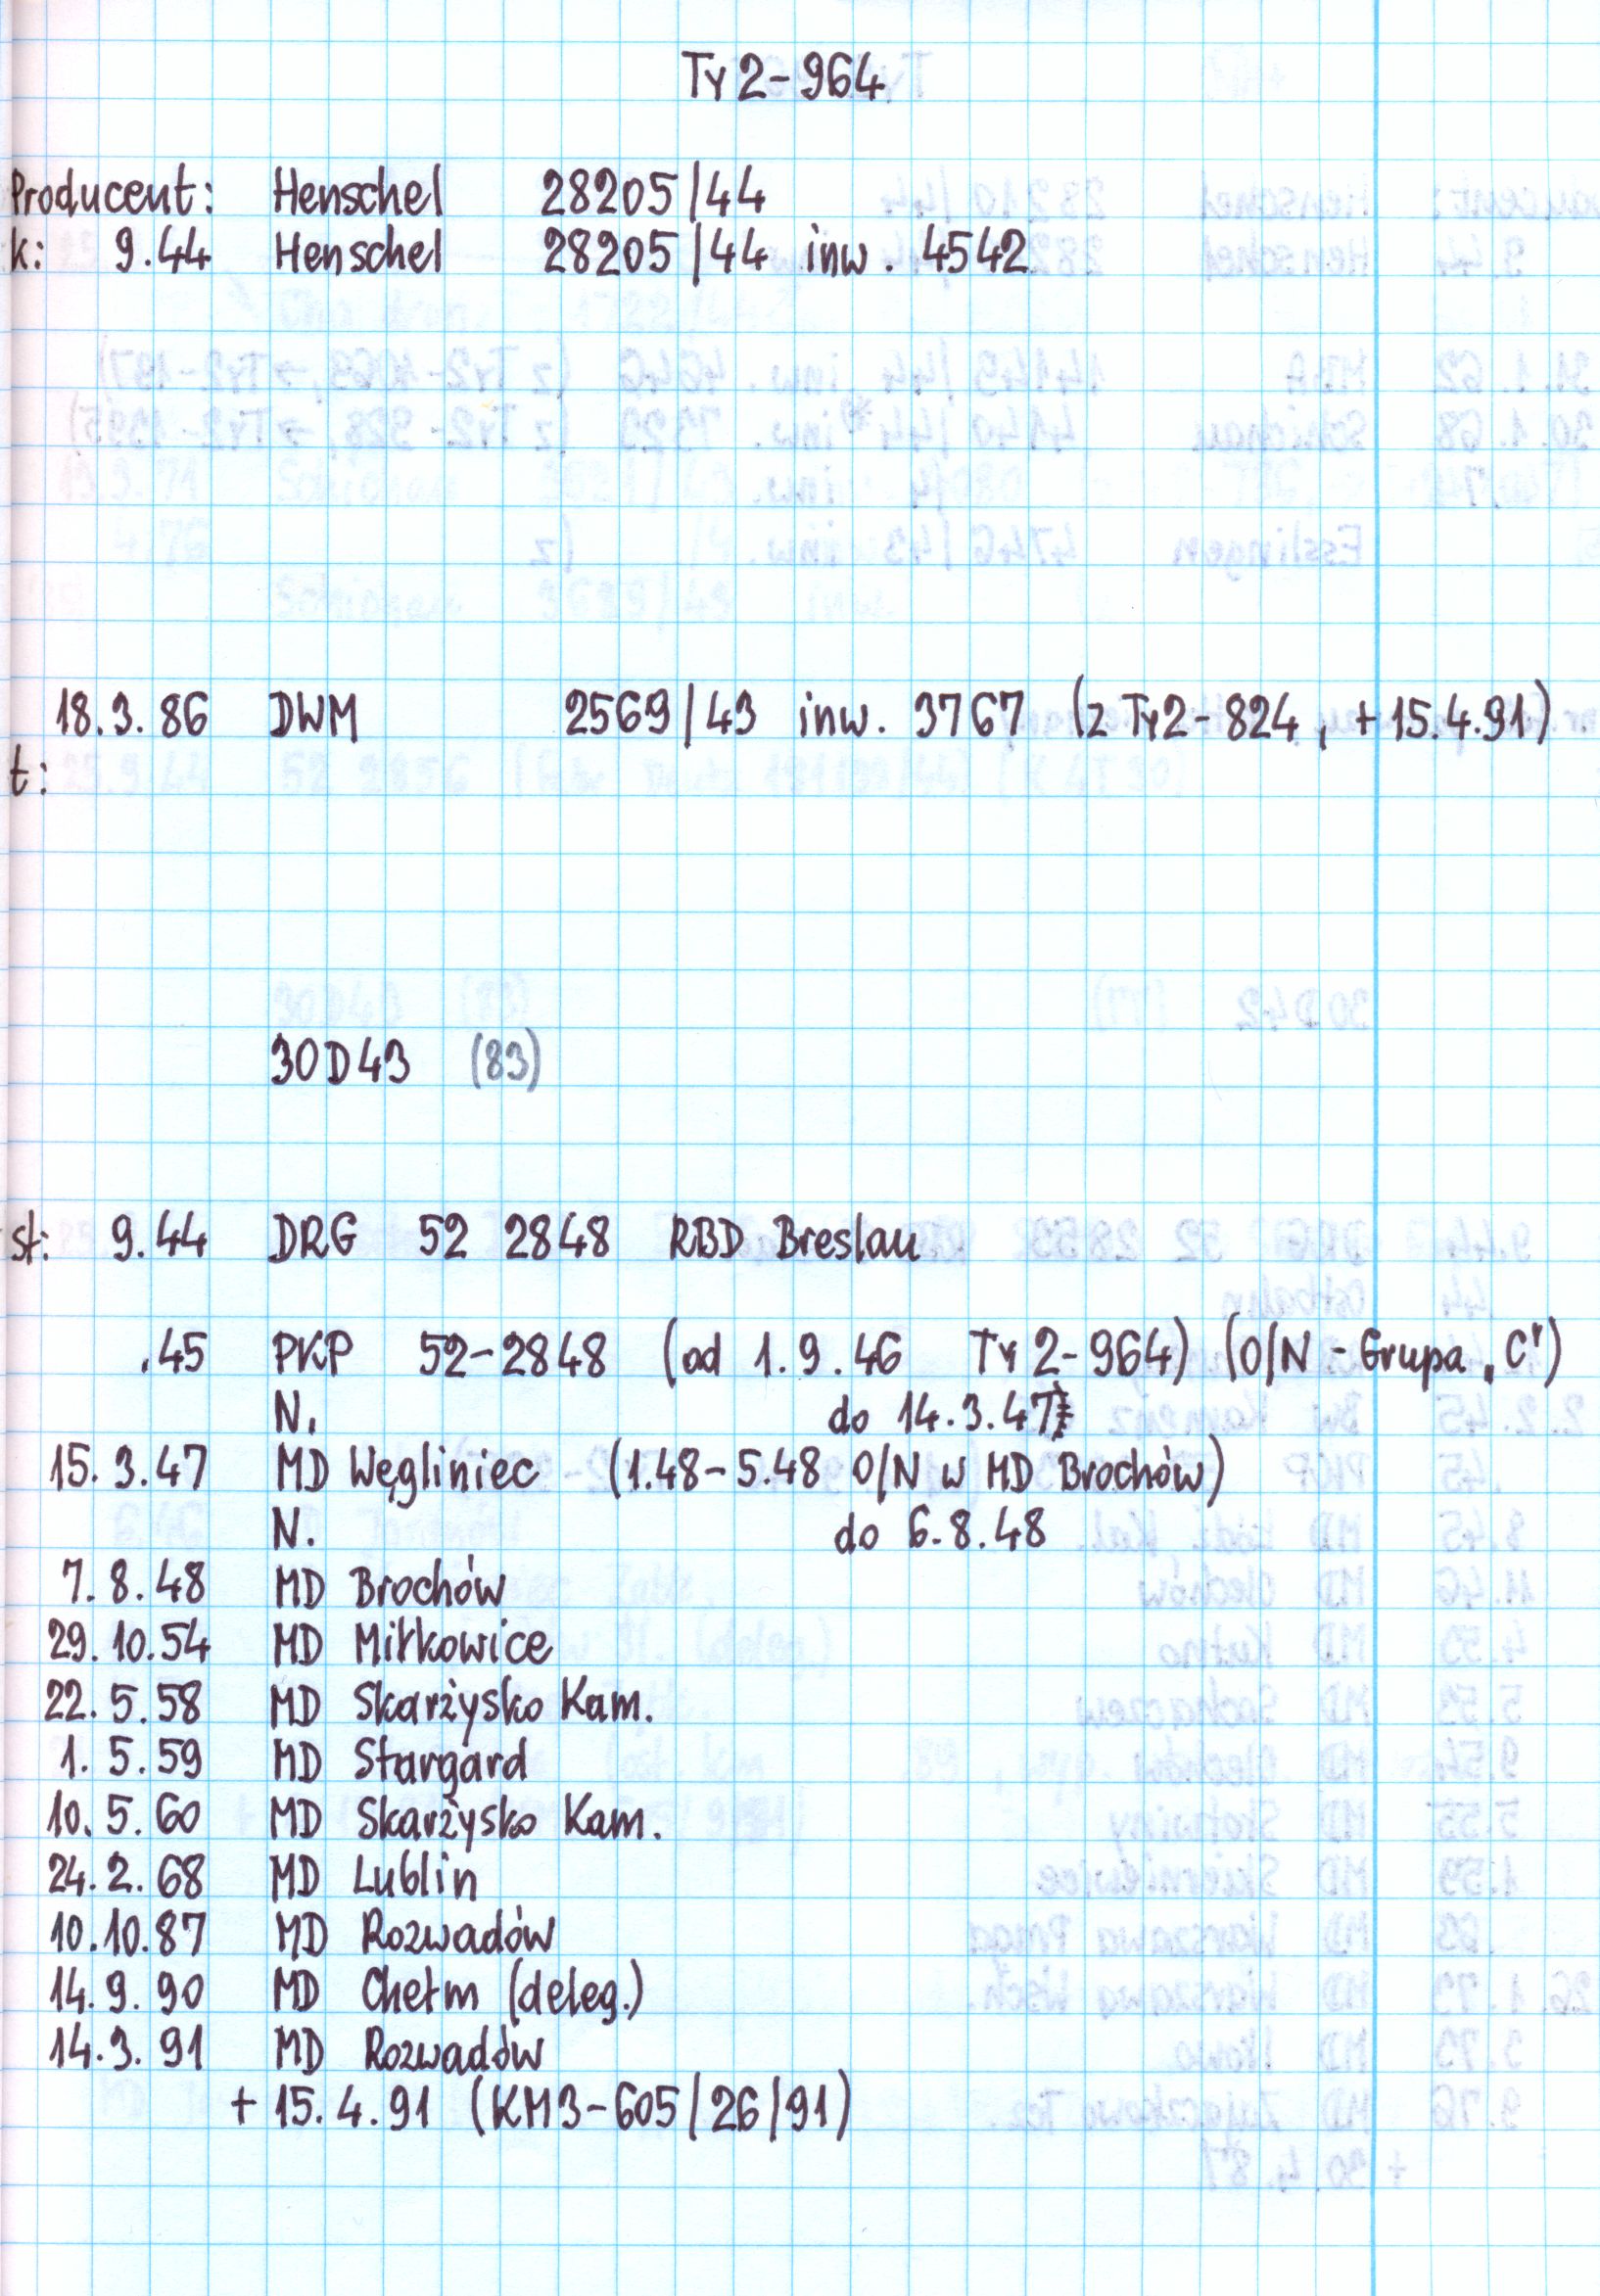 Ty2-964
Producent: Henschel 28205/44
k: 9.44 Henschel 28205/44 inw. 4542
18.3.86 DWM 2569/43 inw. 3767 (z Ty2-824, +15.4.91)
t:
30D43 (83)
st: 9.44 DRG 52 2848 RBD Breslau
.45 PKP 52-2848 (od 1.9.46 Ty2-964) (O/N - Grupa „C")
N. do 14.3.47
15.3.47 MD Węgliniec (1.48-5.48 O/N w MD Brochów)
N. do 6.8.48
7.8.48 MD Brochów
29.10.54 MD Miłkowice
22.5.58 MD Skarżysko Kam.
1.5.59 MD Stargard
10.5.60 MD Skarżysko Kam.
24.2.68 MD Lublin
10.10.87 MD Rozwadów
14.9.90 MD Chełm (deleg.)
14.3.91 MD Rozwadów
+ 15.4.91 (KM3-605/26/91)